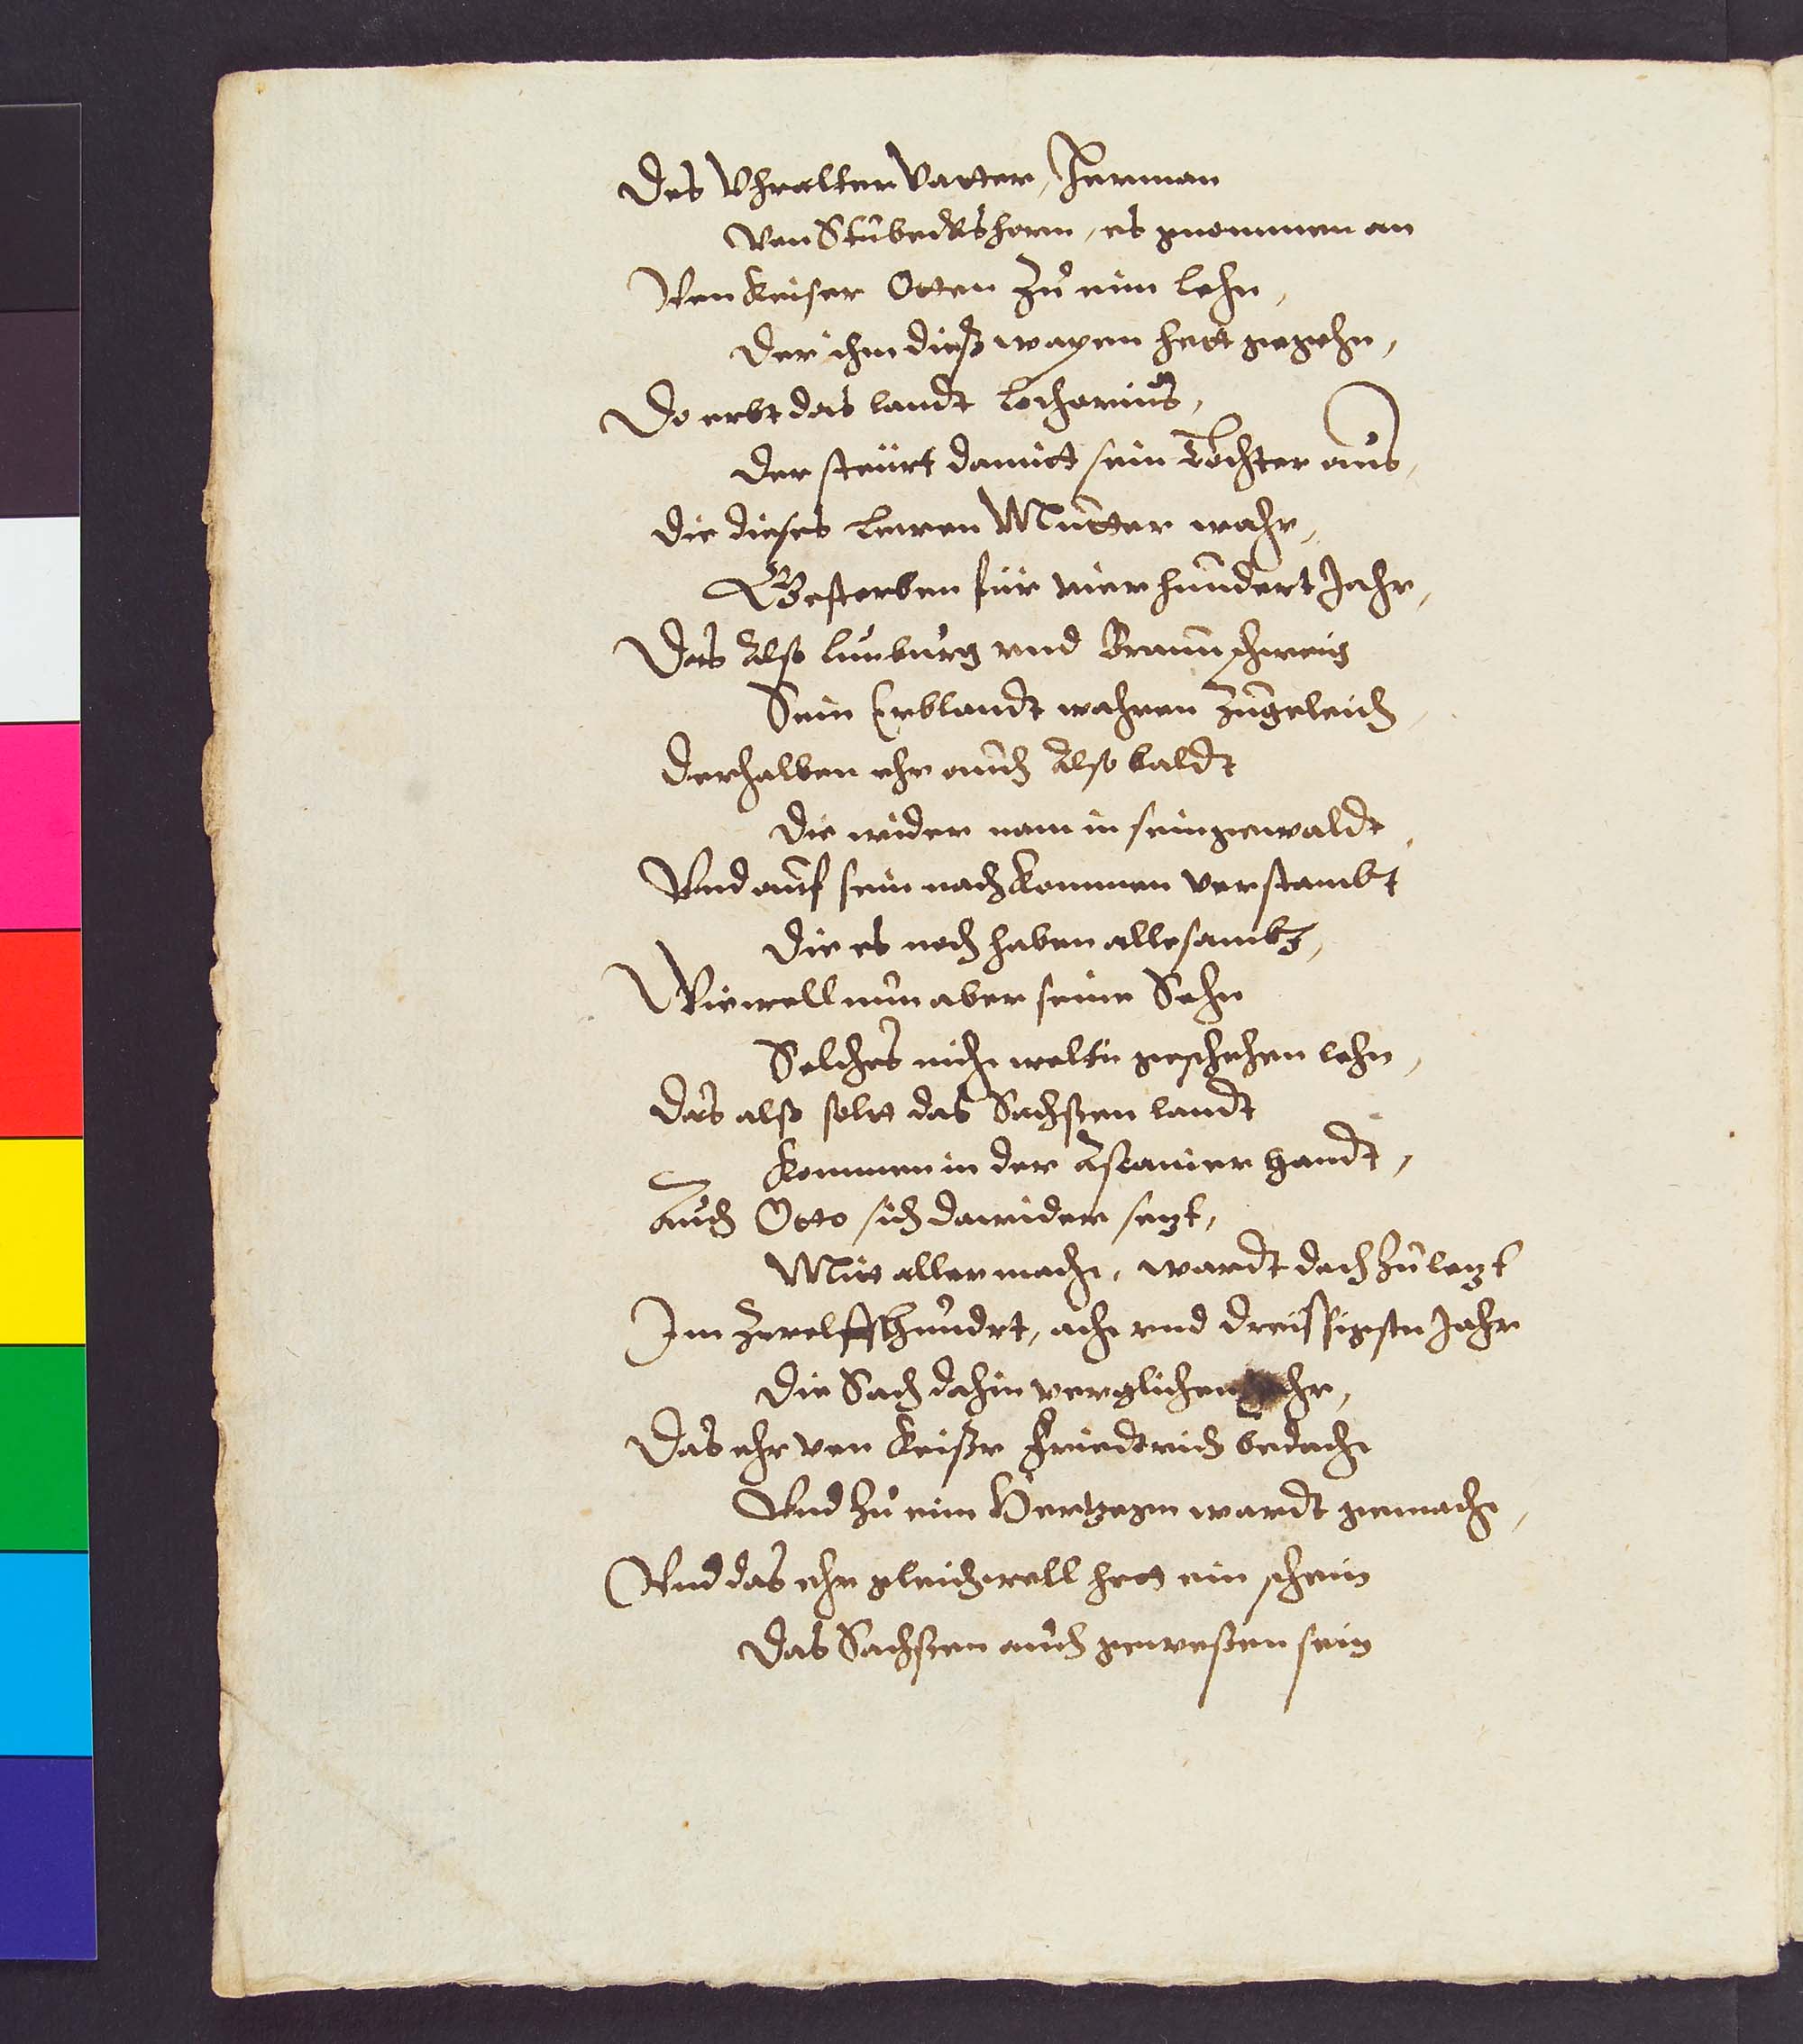 Des Uhralter Vatter, Herman
Von Stubeckshorn, es genommen an
Von Keiser Otten zu eim lehn,
Der ihm dieß wapen hett gegebn,
Do erbt das landt Lotharius,
Der steurt damitt sein Tochter aus,
Die dieses Lewen Mutter wahr,
Gestorben für vier hundert Jahr,
Das Also Lunburg vnd Braunschweig
Sein Erblandt wahren zugeleich
Derhalben ehr auch Also baldt
Die wider nam in sein gewaldt,
Vnd auf sein nachkommen verstambt
Die es noch haben allesambt,
Wiewoll nun aber seine Sohn
Solches nicht woltn geschehen lohn,
Das also solt das Sachssen landt
Kommen in der Ascanier handt,
Auch Otto sich dawider setzt,
Mitt aller macht, wardt doch zu letzt
Im zwelffhundrt, acht vnd dreissigstn Jahr
Die Sach dahin verglichen gahr,
Das ehr von Keißr Friedtrich bedacht
Vnd zu eim Hertzogn wardt gemacht,
Vnd das ehr gleichwoll hett ein schein
Das Sachssen auch gewessen sein